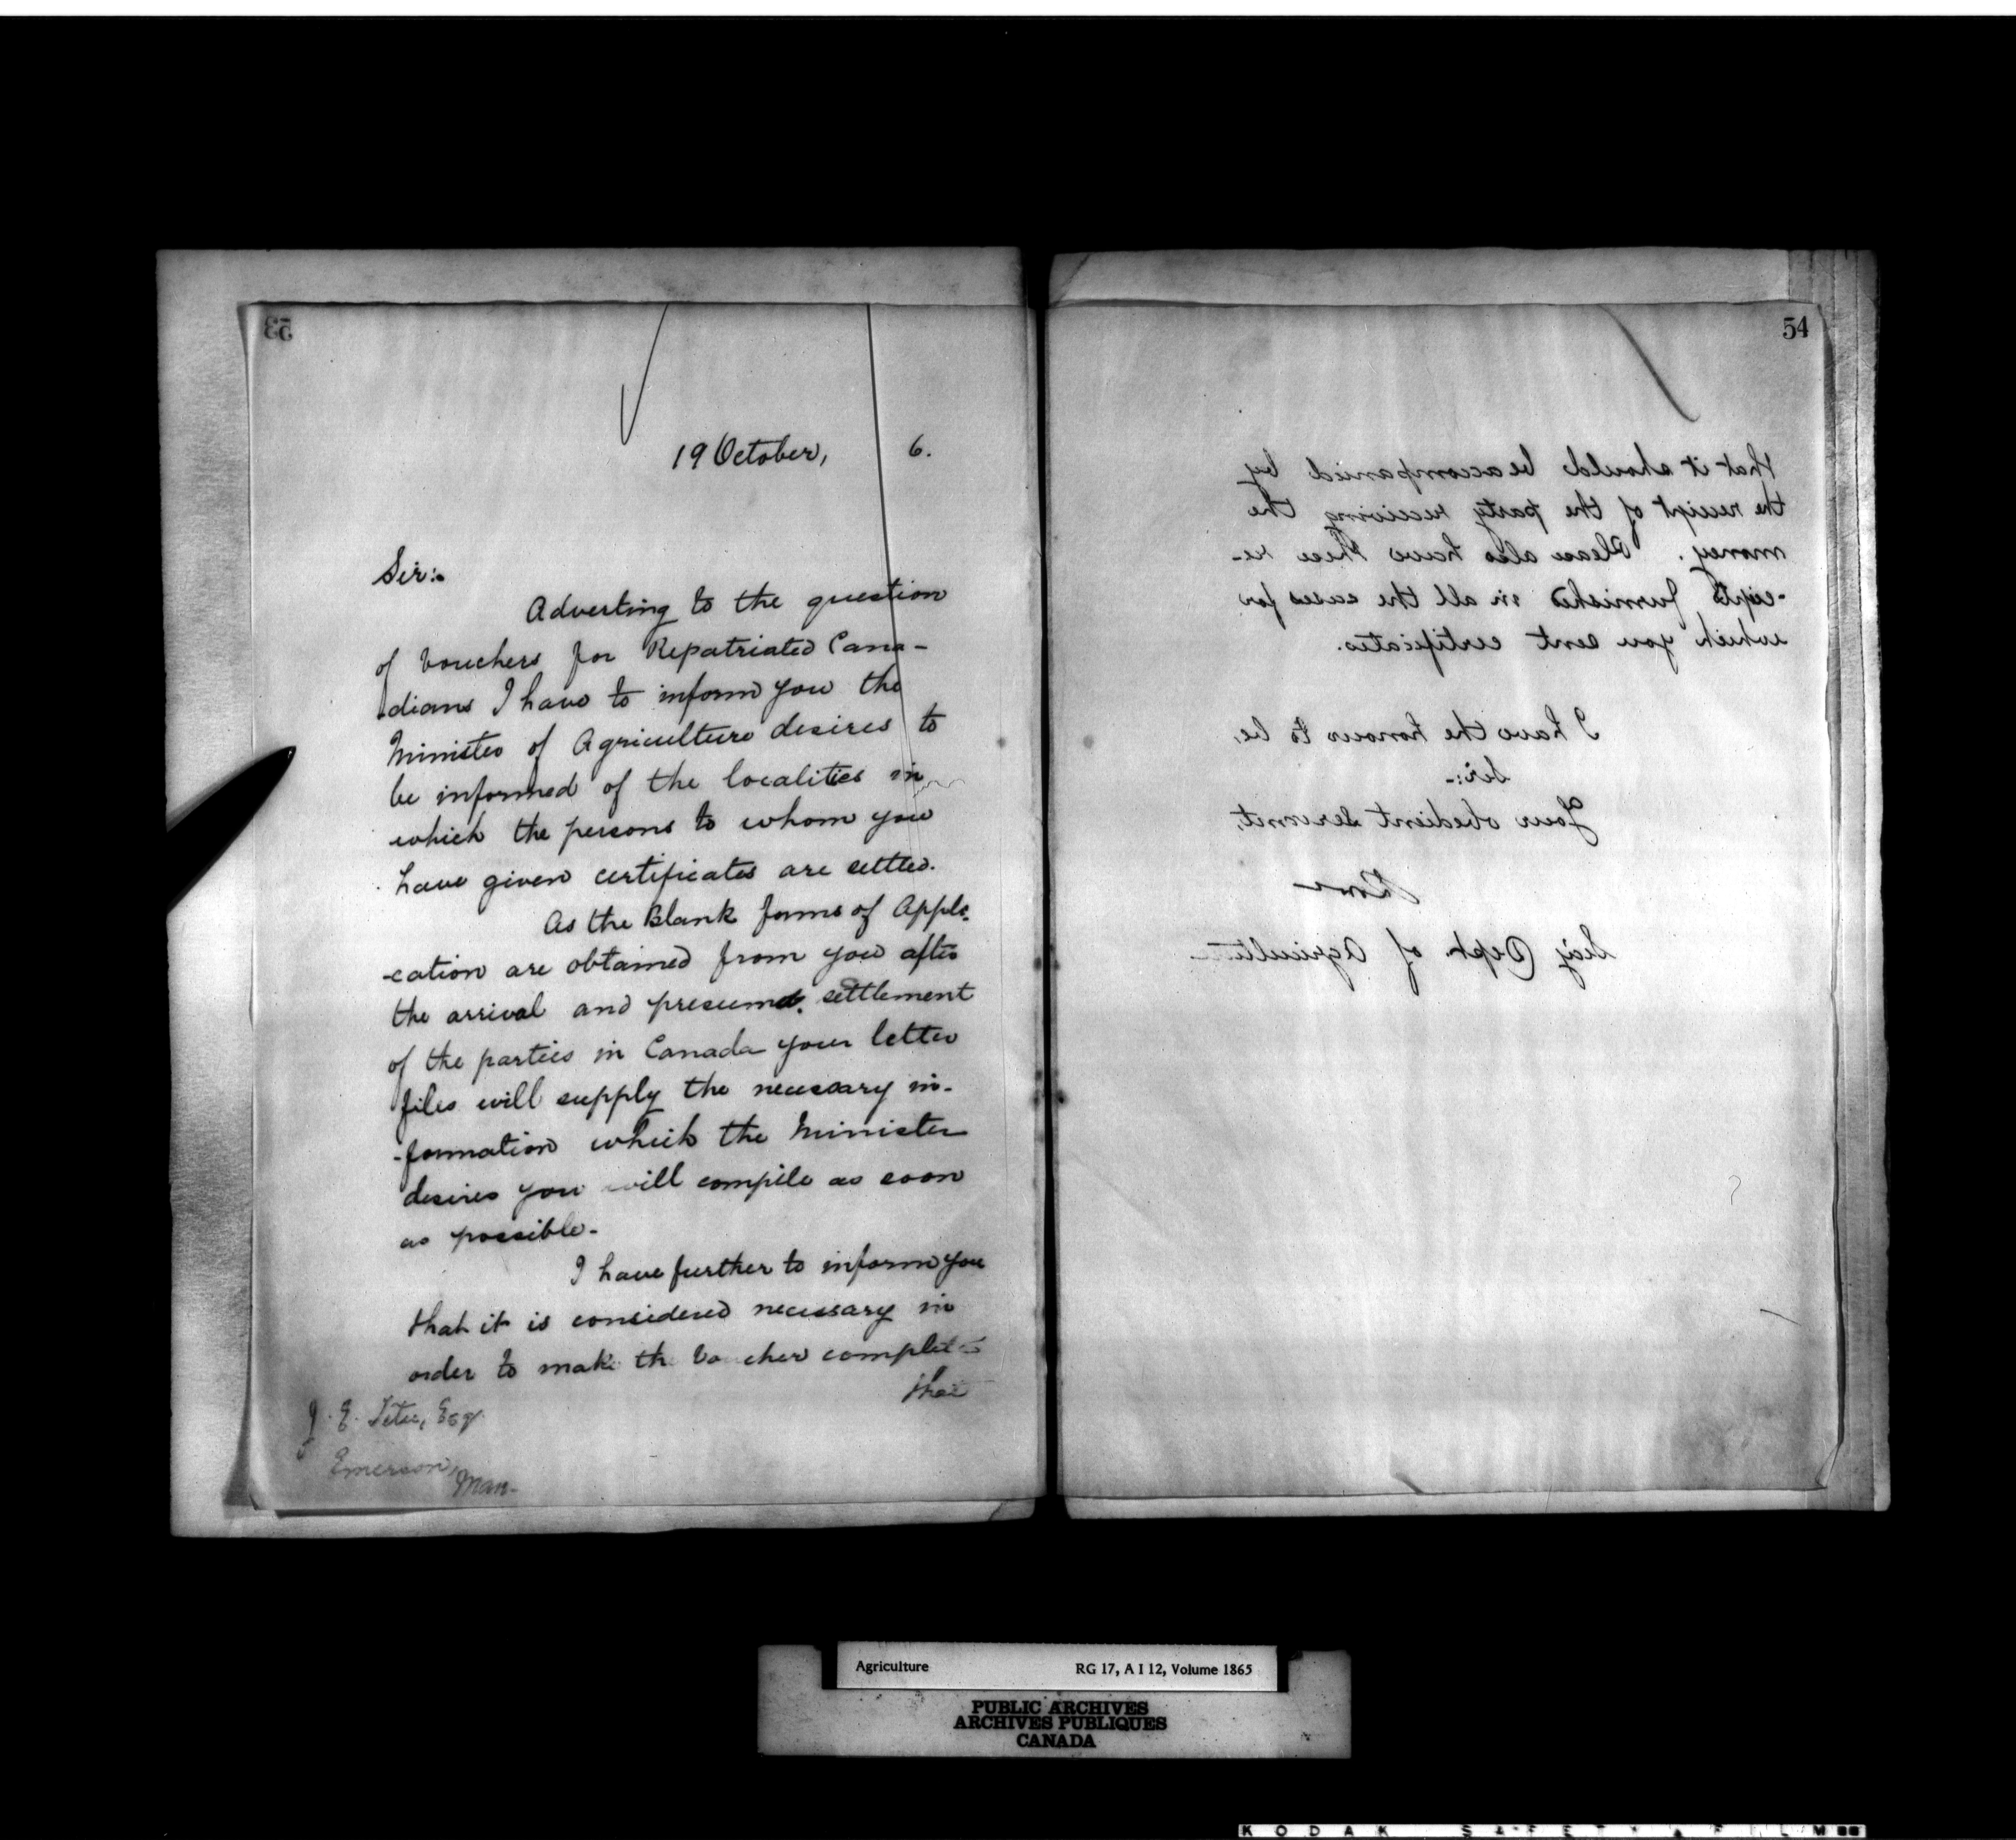 53
19 October, 6.
Sir:-
Adverting to the question
of Vouchers for Repatriated Cana-
dians I have to inform you the
Minister of Agriculture desires to
be informed of the localities in
which the persons to whom you
have given certificates are settled.
As the Blank forms of Appli-
-cation are obtained from you after
the arrival and presumed settlement
of the parties in Canada your letter
files will supply the necessary in-
-formation which the Minister
desires you will compile as soon
as possible-
I have further to inform you
that it is considered necessary in
order to make the Voucher complete
that
J. E. Tetu, Esq
Emerson,
Man-
54
that it should be accompanied by
the receipt of the party receiving the
money. Please also have these re-
-ceipts furnished in all the cases for
which you sent certificates.
I have the honour to be,
Sir:-
Your obedient Servant,
Secy Dept. of Agriculture
Agriculture RG 17, A I 12, Volume 1865
PUBLIC ARCHIVES
ARCHIVES PUBLIQUES
CANADA
KODAK SAFETY FILM